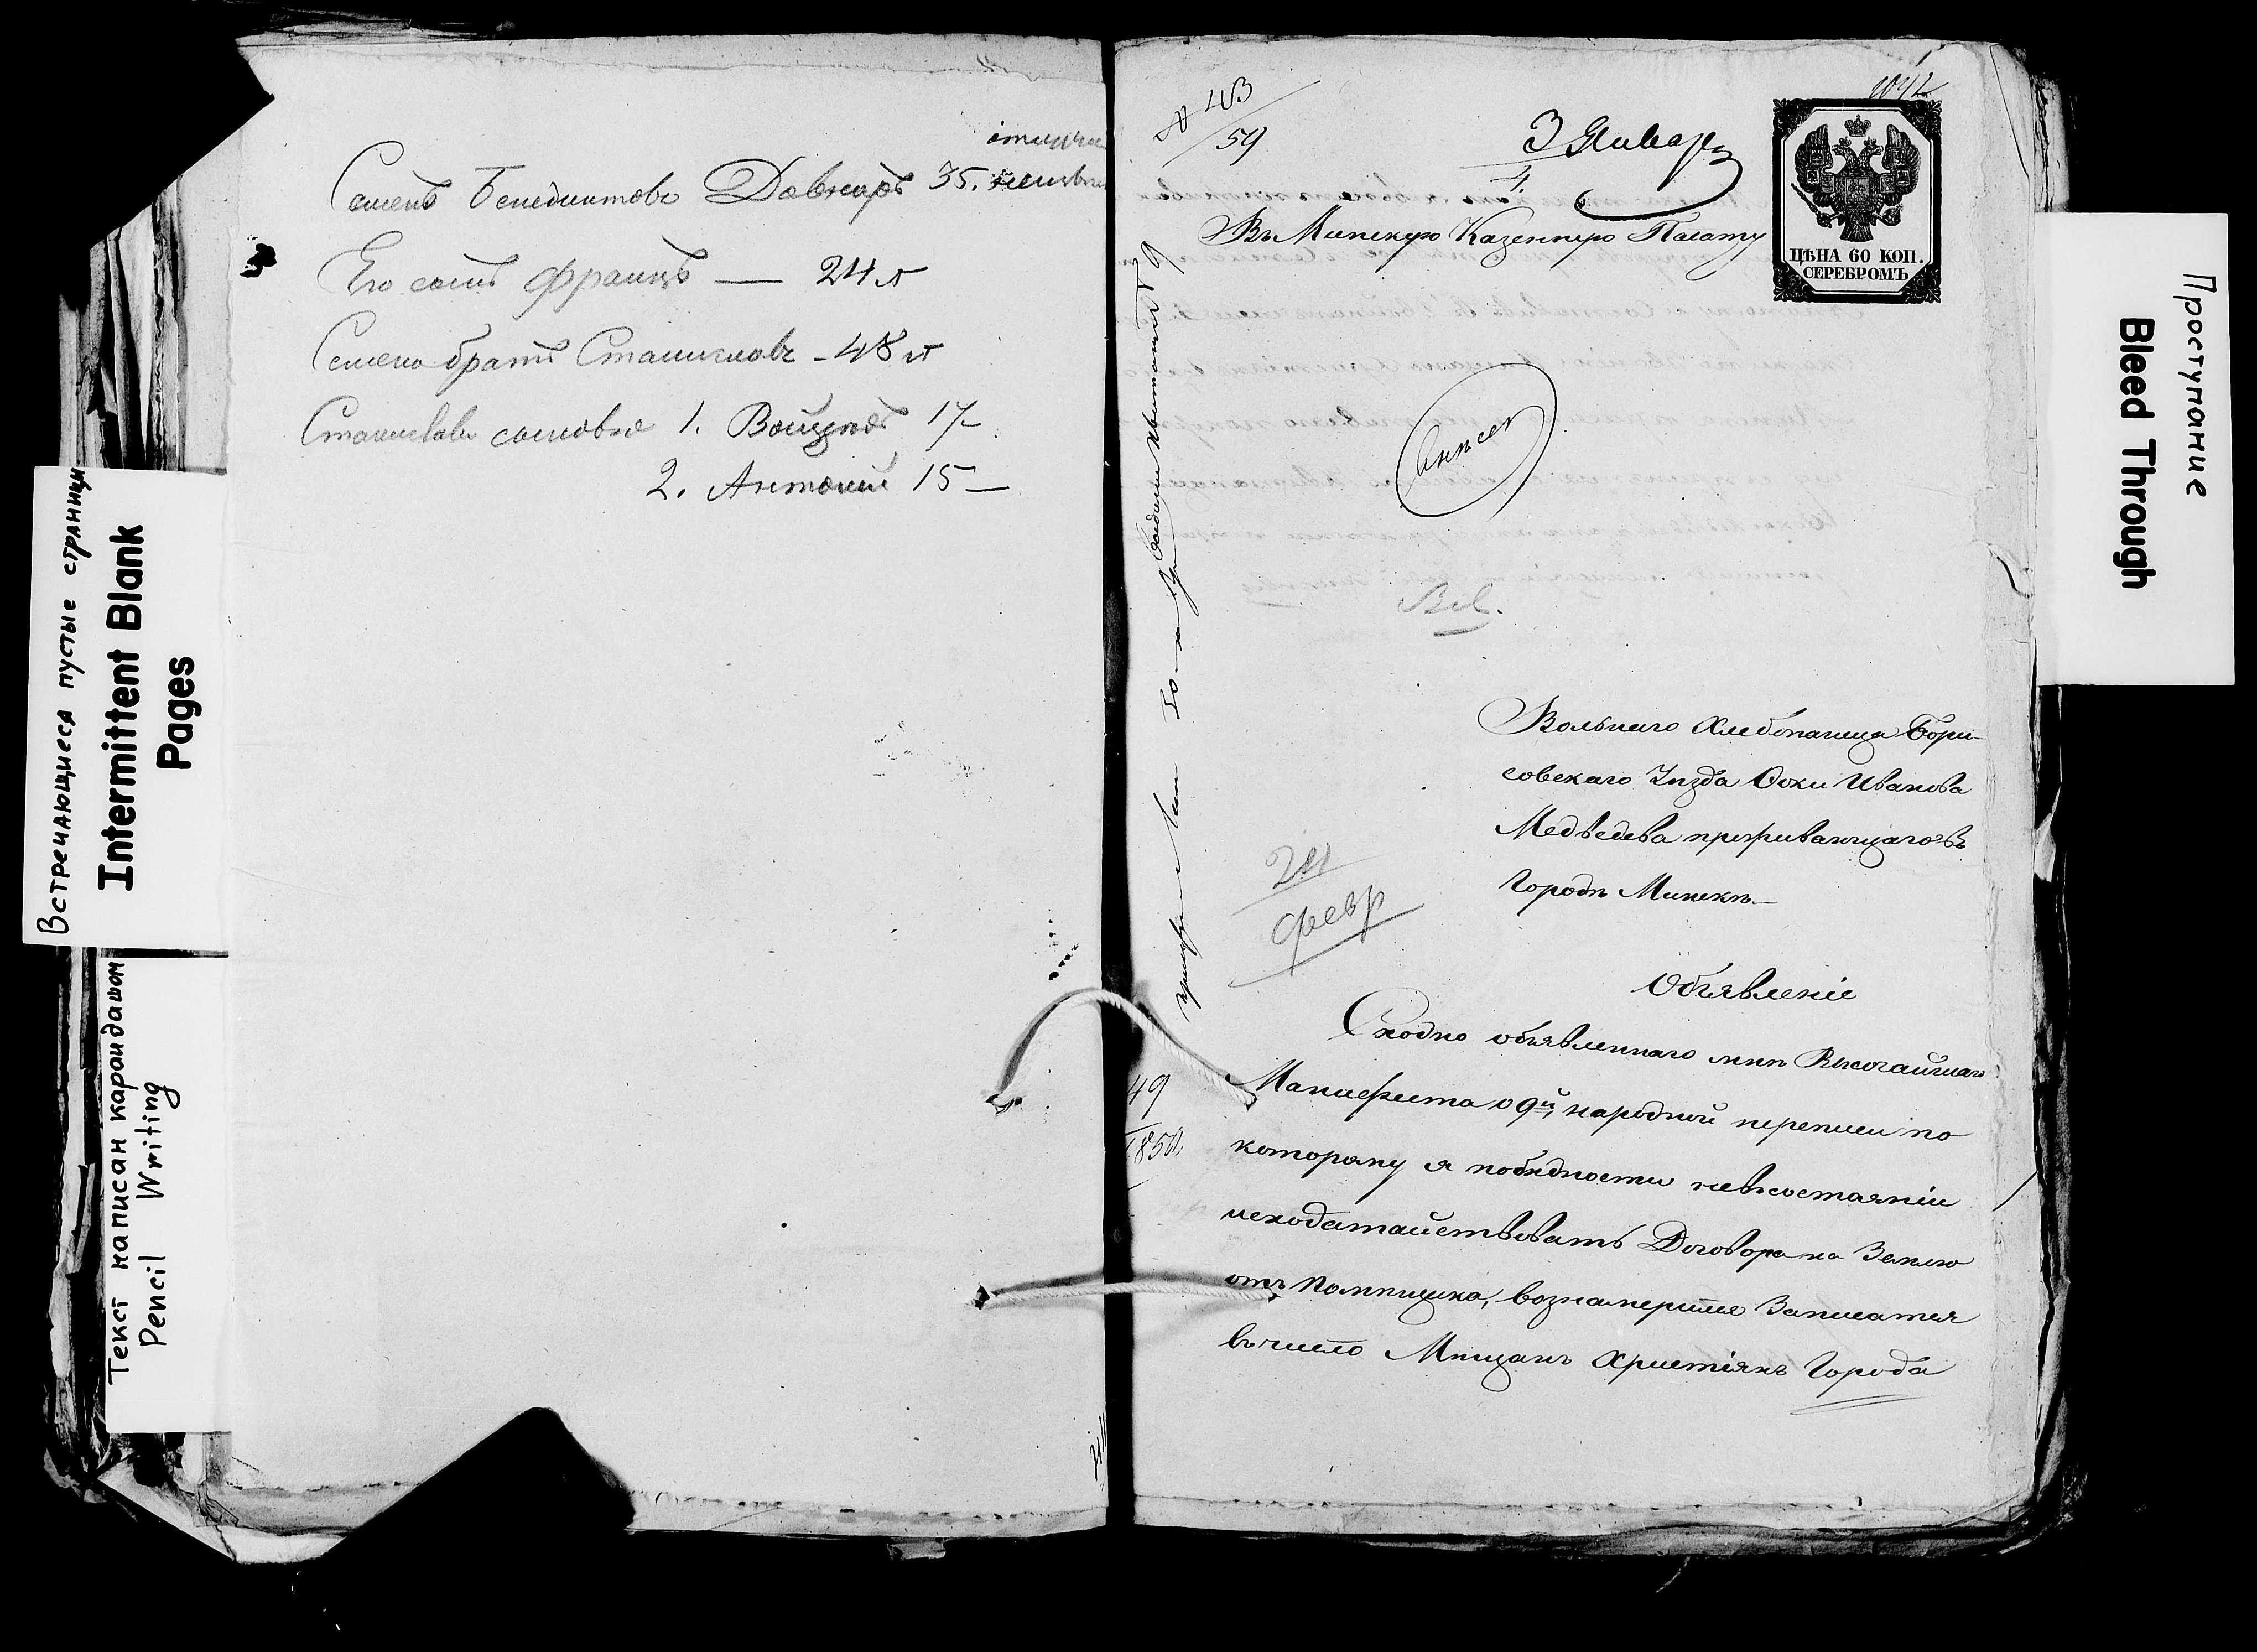 Встречающиеся пустые страницы
Intermittent Blank
Pages
Текст написан карандашом
Pencil Writing
Семенъ Бенедиктовъ Довнаръ 35.
Его сынъ Францъ — 24 л
Семена братъ Станиславъ - 48 л
Станислава сыновья 1. Войцехъ 17 —
2. Антоній 15 —
№ 413
59
3 Января
4.
1042
ЦѢНА 60 КОП.
СЕРЕБРОМЪ
Въ Минскую Казенную Палату
24
февр
Вольнаго Хлебопашца Бори-
совскаго Уѣзда Фоки Иванова
Медведева проживающаго въ
Городѣ Минскѣ —
Объявленіе
Сходно объявленнаго мнѣ Высочайшаго
Манифеста о 9й народной переписи по
которому я по бѣдности не въ состояніи
исходатайствовать Договора на Землю
отъ Помѣщика, вознамерился Записатся
въ число Мѣщанъ Христіянъ Города
49
1850
Проступание
Bleed Through